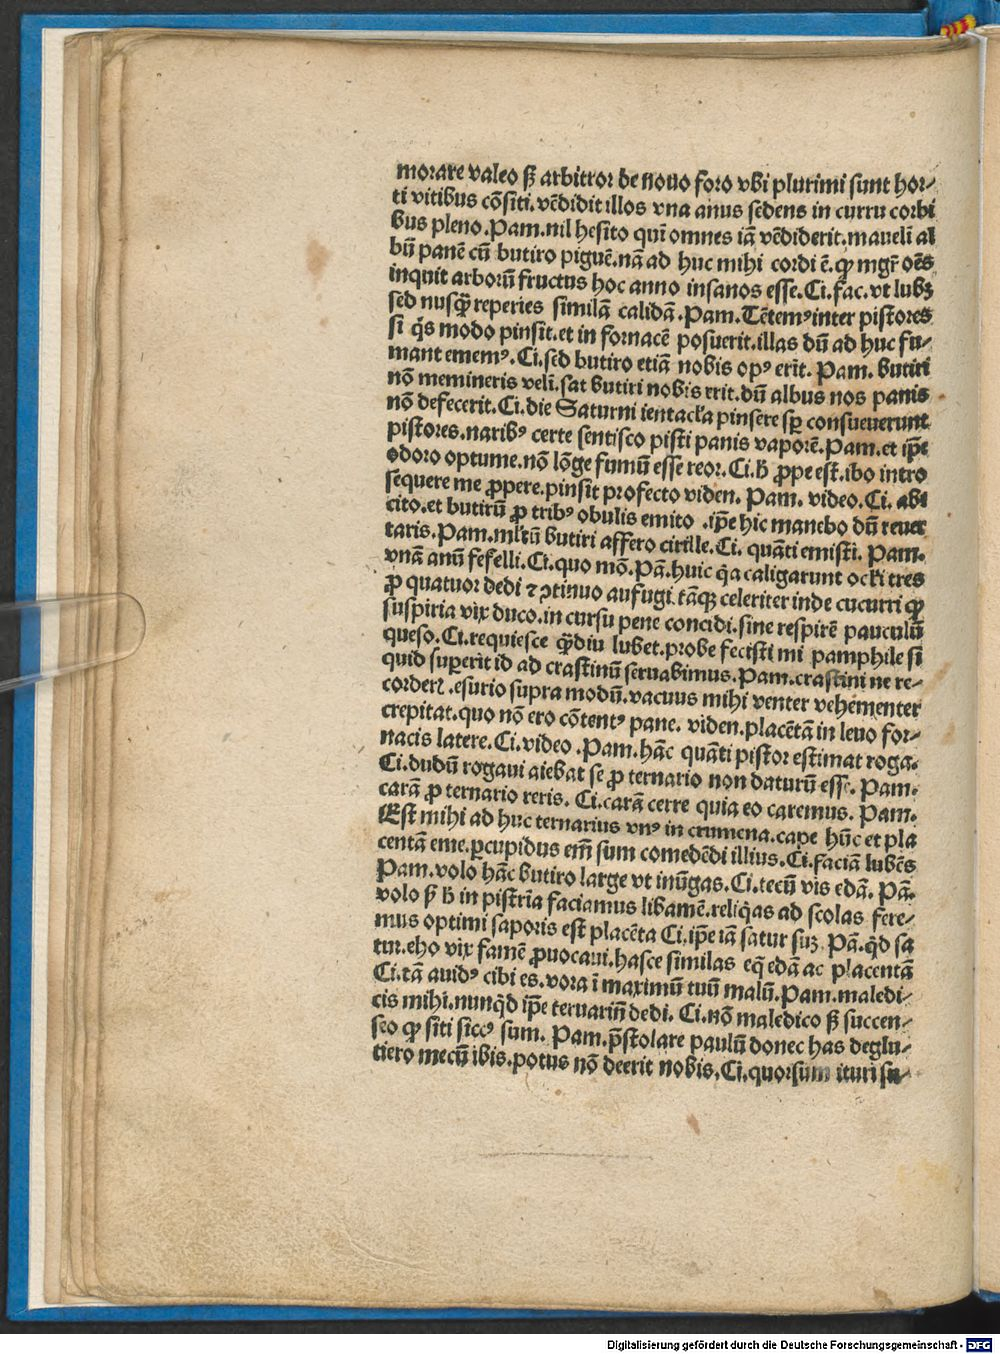 morare valeo sꝫ arbitror de nouo foro vbi plurimi sunt hor⸗
ti vitibus cōsiti.vēdidit illos vna anus sedens in curru corbi
bus pleno.Pam.nil hesito qui omnes iā vēdiderit.mauelī al
bū panē cū butiro piguē.nā ad huc mihi cordi ē.ꝙ mgr̄ oēs
inquit arborū fructus hoc anno insanos esse.Ci.fac.vt lubꝫ
sed nusꝙ̄ reperies similā calidā.Pam.Tētemꝰ inter pistores
si q̇s modo pinsit.et in fornacē posuerit.illas dū ad huc fu⸗
mant ememꝰ.Ci.sed butiro etiā nobis opꝰ erit. Pam. butiri
nō memineris velī.sat butiri nobis erit.dū albus nos panis
nō defecerit.Ci.die Saturni ientacl̄a pinsere sꝑ consueuerunt
pistores.naribꝰ certe sentisco pisti panis vaporē.Pam.et ip̄e
odoro optume.nō lōge fumū esse reor.Ci.h̄ ꝓpe est.ibo intro
sequere me ꝓpere.pinsit profecto viden. Pam. video.Ci. abi
cito.et butirū ꝓ tribꝰ obulis emito .ip̄e hic manebo dū reuer
taris.Pam.ml̄tū butiri affero cirille.Ci. quāti emisti. Pam.
vnā anū fefelli.Ci.quo mō.Pā.huic q̇a caligarunt ocl̄i tres
ꝓ quatuor dedi ⁊ ꝯtinuo aufugi.tāqꝫ celeriter inde cucurri ꝙ
suspiria vix duco.in cursu pene concidi.sine respirē pauculū
queso.Ci.requiesce ꝙ̄diu lubet.probe fecisti mi pamphile si
quid superit id ad crastinū seruabimus.Pam.crastini ne re⸗
corderꝭ.esurio supra modū.vacuus mihi venter vehementer
crepitat.quo nō ero cōtentꝰ pane. viden.placētā in leuo for⸗
nacis latere.Ci.video .Pam.hāc quāti pistor estimat roga.
Ci.dudū rogaui aiebat se ꝓ ternario non daturū esse. Pam.
carā ꝓ ternario reris. Ci.carā cerre quia eo caremus. Pam.
Est mihi ad huc ternarius vnꝰ in crumena.cape hūc et pla
centā eme.ꝑcupidus em̄ sum comedēdi illius.Ci.faciā lubēs
Pam.volo hāc butiro large vt inūgas.Ci.tecū vis edā. Pā.
volo sꝫ h̄ in pistrīa faciamus libamē.reliq̇as ad scolas fere⸗
mus optimi saporis est placēta Ci.ip̄e iā satur suꝫ. Pā.q̇d sa
tur.eho vix famē ꝓuocaui.hasce similas eq̄ edā ac placentā
Ci.tā auidꝰ cibi es.vora ī maximū tuū malū.Pam.maledi⸗
cis mihi.nunq̇d ip̄e teruariū dedi. Ci.nō maledico sꝫ succen⸗
seo ꝙ siti siccꝰ sum. Pam.p̄stolare paulū donec has deglu⸗
tiero mecū ibis.potus nō deerit nobis.Ci.quorsum ituri su⸗
Digitalisierung gefördert durch die Deutsche Forschungsgemeinschaft - DFG